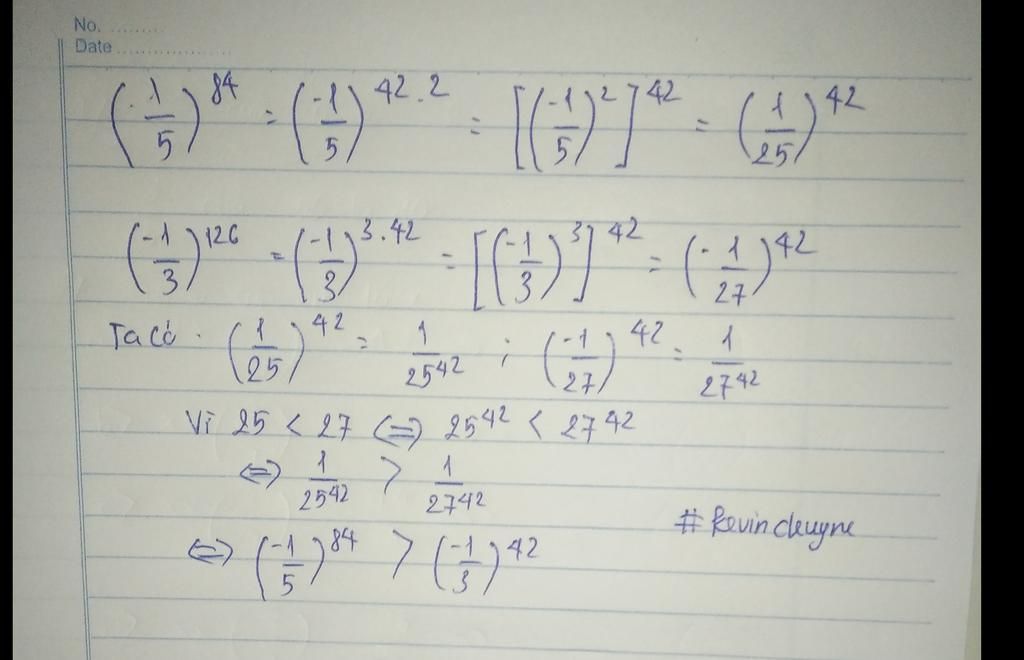 No. ..........
Date ....................
(-1/5)^84 = (-1/5)^42.2 = [(-1/5)^2]^42 = (1/25)^42
(-1/3)^126 = (-1/3)^3.42 = [(-1/3)^3]^42 = (-1/27)^42
Ta có. (1/25)^42 = 1/25^42 ; (-1/27)^42 = 1/27^42
Vì 25 < 27 <=> 25^42 < 27^42
<=> 1/25^42 > 1/27^42
# Kevin cleugne
<=> (-1/5)^84 > (-1/3)^42